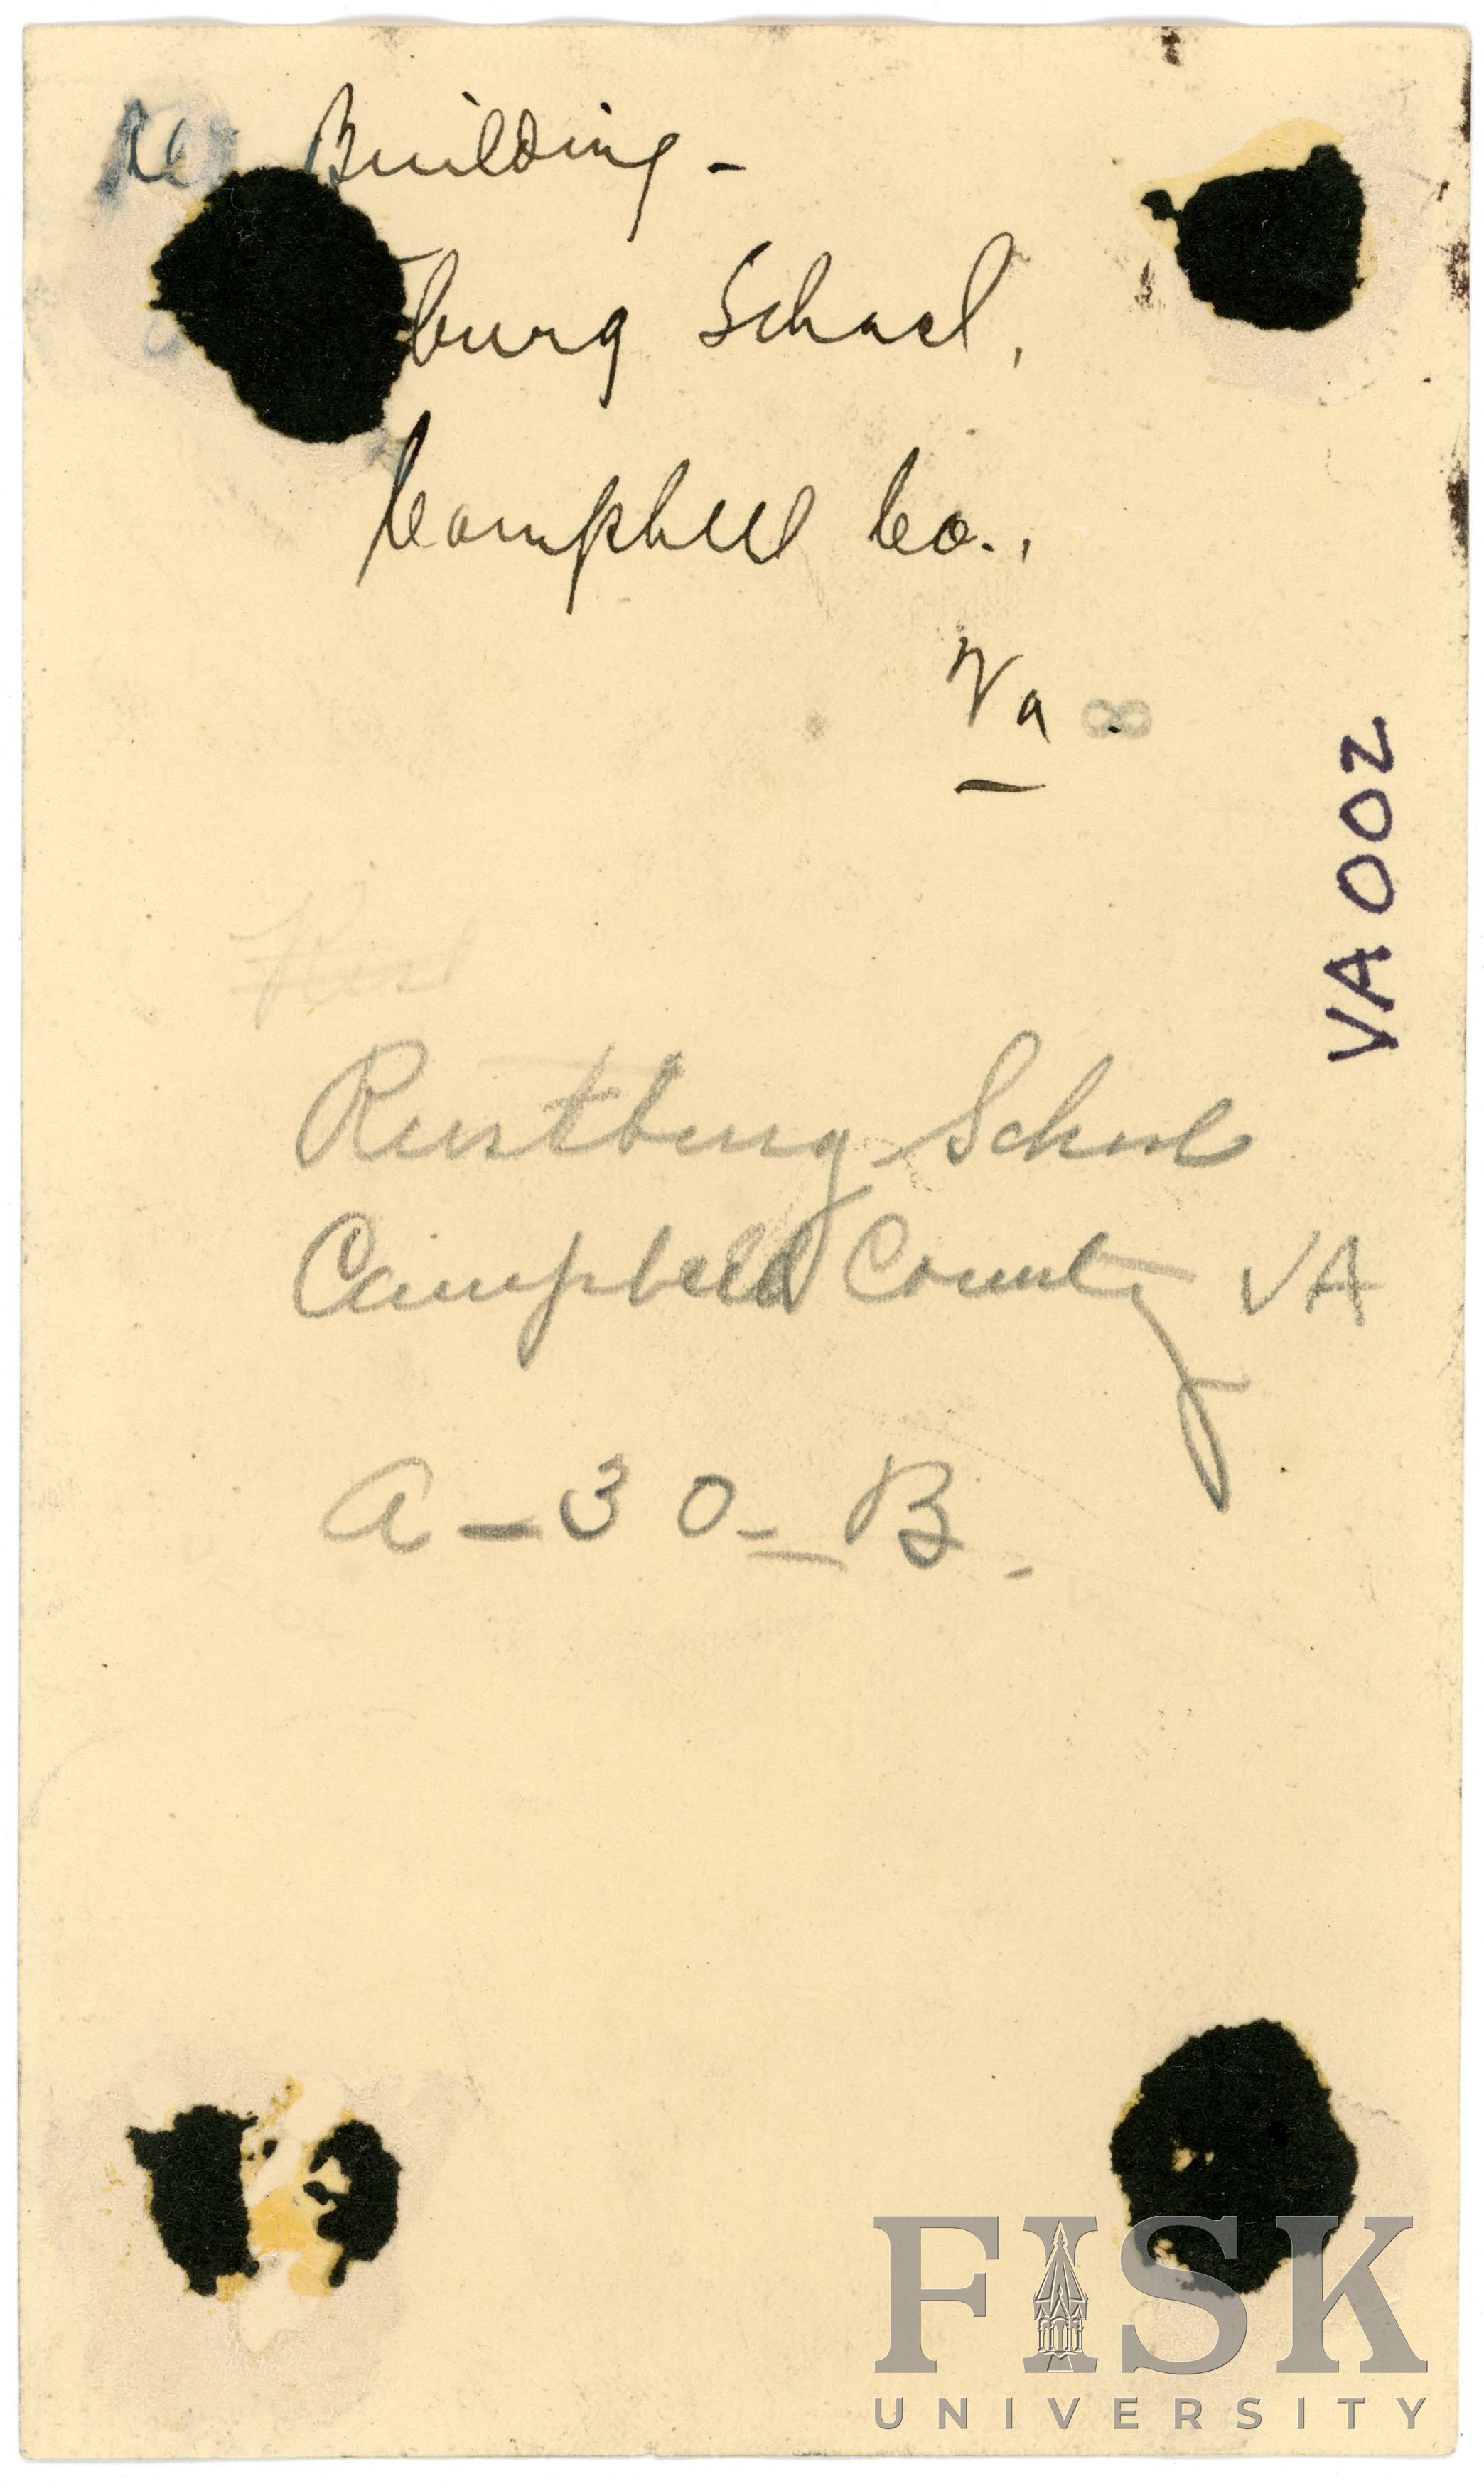 Building -
burg School,
Campbell Co.,
Va.
8
VA 002
Rustburg School
Campbell County VA
A - 30 - B.
FISK
UNIVERSITY